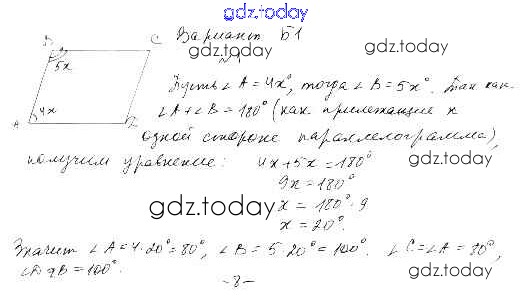 gdz.today
B C Вариант Б1
gdz.today gdz.today
5x №1
Пусть ∠A = 4x°, тогда ∠B = 5x°. Так как
4x
A ∠A + ∠B = 180° (как прилежащие к
одной стороне параллелограмма),
получим уравнение: 4x + 5x = 180°
gdz.today
9x = 180°
x = 180° : 9
gdz.today
x = 20°.
gdz.today
Значит ∠A = 4·20° = 80°, ∠B = 5·20° = 100°. ∠C = ∠A = 80°,
∠B = 100°.
gdz.today
-8-